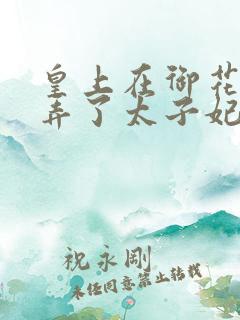 皇上在御花
弄了太子妃
祝永剛
未经同意禁止转载